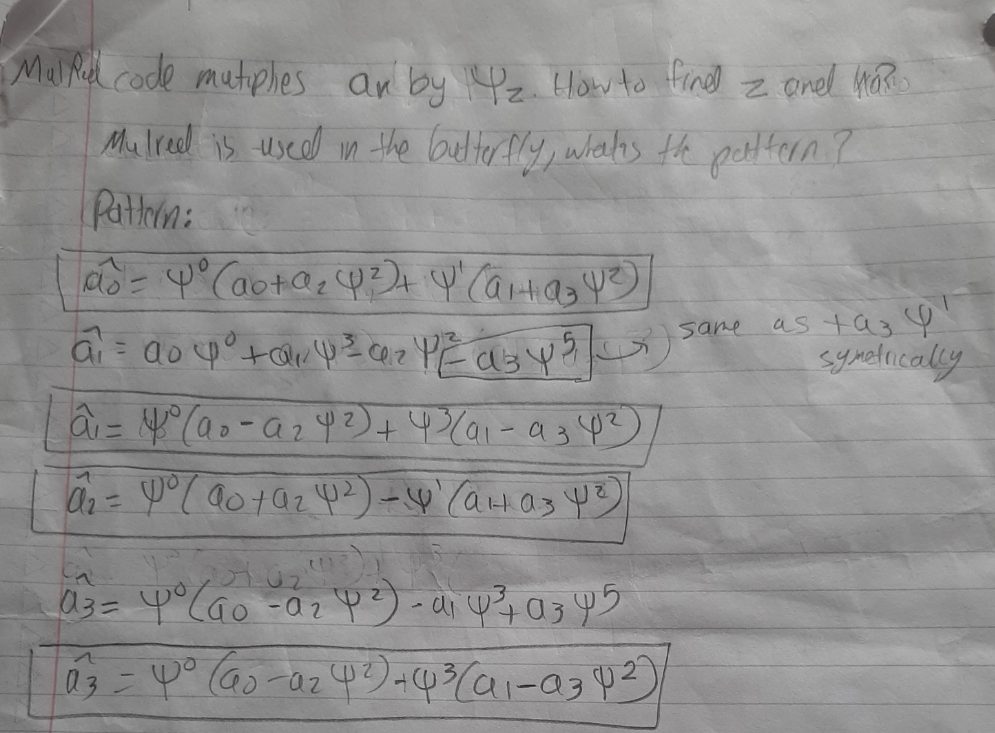 MulRed code mutiplies an by Ψz. How to find z and
Mulred is used in the butterfly, whats the pattern?
Pattern:
â0 = Ψ⁰(a0+a2Ψ²)+Ψ¹(a1+a3Ψ²)
â1 = a0Ψ⁰+a1Ψ³-a2Ψ²-a3Ψ⁵ same as +a3Ψ¹
symetrically
â1 = Ψ⁰(a0-a2Ψ²)+Ψ³(a1-a3Ψ²)
â2 = Ψ⁰(a0+a2Ψ²)-Ψ¹(a1+a3Ψ²)
â3 = Ψ⁰(a0-a2Ψ²)-a1Ψ³+a3Ψ⁵
â3 = Ψ⁰(a0-a2Ψ²)-Ψ³(a1-a3Ψ²)